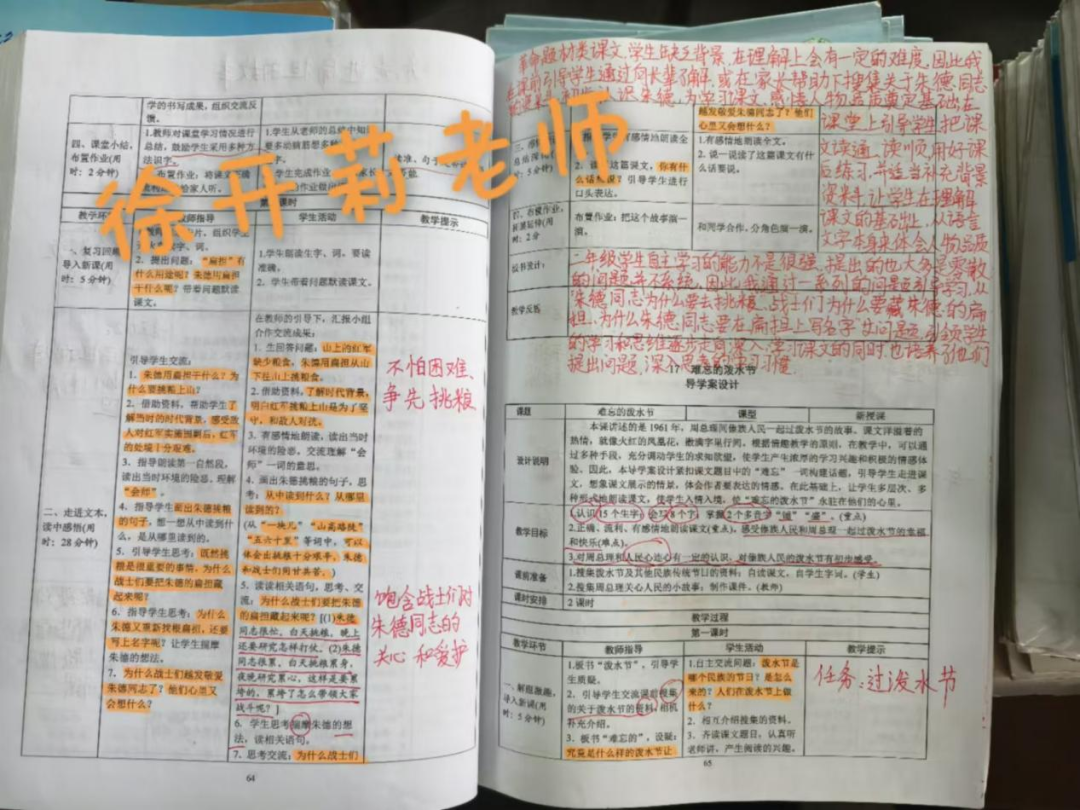 徐开莉老师
学的书写成果，组织交流反
馈。
四、课堂小结，
布置作业(用
时：2分钟)
1.教师对课堂学习情况进行
总结，鼓励学生采用多种方
法识字。
1.学生从老师的总结中知
要多动脑筋想多种
教学环
师指导
学生活动
教学提示
一、复习回顾，
导入新课(用
时：5分钟)
2. 提出问题：“扁担”有
什么用途呢？朱德用扁担
干什么呢？带着问题默读
课文。
1.学生朗读生字、词，要读
准确。
2. 学生带着问题默读课文。
二、走进文本，
读中感悟(用
时：28分钟)
引导学生交流：
1. 朱德用扁担干什么？为
什么要挑粮上山？
2. 借助资料，帮助学生了
解当时的时代背景，感受敌
人对红军实施围剿后，红军
的处境十分艰难。
3. 指导朗读第一自然段，
读出当时环境的险恶，理解
“会师”。
4. 指导学生画出朱德挑粮
的句子，想一想从中读到什
么，是从哪里读到的。
5. 引导学生思考：既然挑
粮是很重要的事情，为什么
战士们要把朱德的扁担藏
起来呢？
6. 指导学生思考：为什么
朱德又重新找根扁担，还要
写上名字呢？让学生揣摩
朱德的想法。
7. 为什么战士们越发敬爱
朱德同志了？他们心里又
会想什么？
在教师的引导下，汇报小组
合作交流成果：
1. 生回答问题：山上的红军
缺少粮食，朱德用扁担从山
下往山上挑粮食。
2. 借助资料，了解时代背景，
明白红军挑粮上山是为了坚
守，和敌人对抗。
3. 有感情地朗读，读出当时
环境的险恶，交流理解“会
师”一词的意思。
4. 画出朱德挑粮的句子，思
考：从中读到什么？从哪里
读到的？
(从“一块儿”“山高路陡”
“五六十里”等词中，可以
体会出挑粮十分艰辛，朱德
和战士们同甘共苦。)
5. 读读相关语句，思考、交
流：为什么战士们要把朱德
的扁担藏起来呢？[(1)朱德
同志很忙，白天挑粮，晚上
还要研究怎样打仗。(2)朱德
同志很累，白天挑粮累身，
夜晚研究累心，这样是要累
垮的，累垮了怎么带领大家
战斗呢？]
6. 学生思考揣摩朱德的想
法，读相关语句。
7. 思考交流：为什么战士们
不怕困难、
争先挑粮
饱含战士们对
朱德同志的
关心和爱护
64
革命题材类课文，学生缺乏背景，在理解上会有一定的难度，因此我
在课前引导学生通过向长辈了解，或在家长帮助下搜集关于朱德同志
识朱德，为学习课文，感悟人物品质奠定基础。在
课堂上引导学生把课
文读通、读顺，用好课
后练习，并适当补充背景
资料，让学生在理解
课文的基础上，从语言
文字本身来体会人物品质
越发敬爱朱德同志了？他们
心里又会想什么？
1.有感情地朗读全文。
2. 说一说了这篇课文有什
么话要说。
有感情地朗读全
2. 读了这篇课文，你有什
么话想说？引导学生进行
口头表达。
时：2分
布置作业：把这个故事演一
演。
和同学合作，分角色演一演。
板书设计：
教学反思
二年级学生自主学习的能力不是很强，提出的也大多是零散
的问题，并不系统，因此，我通过一系列的问题引领学习，从
朱德同志为什么要去挑粮、战士们为什么要藏朱德的扁
担、为什么朱德同志要在扁担上写名字的问题，引领学生
的学习和思维逐步走向深入，学习课文的同时，也培养了他们
提出问题，深入思考的学习习惯。
难忘的泼水节
导学案设计
课题
难忘的泼水节
课型
新授课
设计说明
本课讲述的是1961年，周总理同傣族人民一起过泼水节的故事。课文洋溢着的
热情，就像火红的凤凰花，散满字里行间。根据情趣教学的原则，在教学中，可以通
过多种手段，充分调动学生的求知欲望，使学生产生浓厚的学习兴趣和积极的情感体
验。因此，本导学案设计紧扣课文题目中的“难忘”一词构建话题，引导学生走进课
文，想象课文展示的情景，体会作者要表达的情感。在此基础上，让学生多层次、多
种形式地朗读课文，使学生入情入境，使“难忘的泼水节”永驻在他们的心里。
教学目标
1.认识15个生字，会写8个字，掌握2个多音字“铺”“盛”。(重点)
2.正确、流利、有感情地朗读课文(重点)，感受傣族人民和周总理一起过泼水节的幸福
和快乐(难点)。
3.对周总理和人民心连心有一定的认识，对傣族人民的泼水节有初步感受。
课前准备
1.搜集泼水节及其他民族传统节日的资料；自读课文，自学生字词。(学生)
2.搜集周总理关心人民的小故事；制作课件。(教师)
课时安排
2 课时
教学过程
第一课时
教学环节
教师指导
学生活动
教学提示
一、解题激趣，
导入新课(用
时：5分钟)
1.板书“泼水节”，引导学
生质疑。
2. 引导学生交流课前搜集
的关于泼水节的资料，相机
补充介绍。
3. 板书“难忘的”，设疑：
究竟是什么样的泼水节让
1.自主交流问题：泼水节是
哪个民族的节日？是怎么
来的？人们在泼水节上做
什么？
2. 相互介绍搜集的资料。
3. 齐读课文题目，认真听
老师讲，产生阅读的兴趣。
任务：过泼水节
65